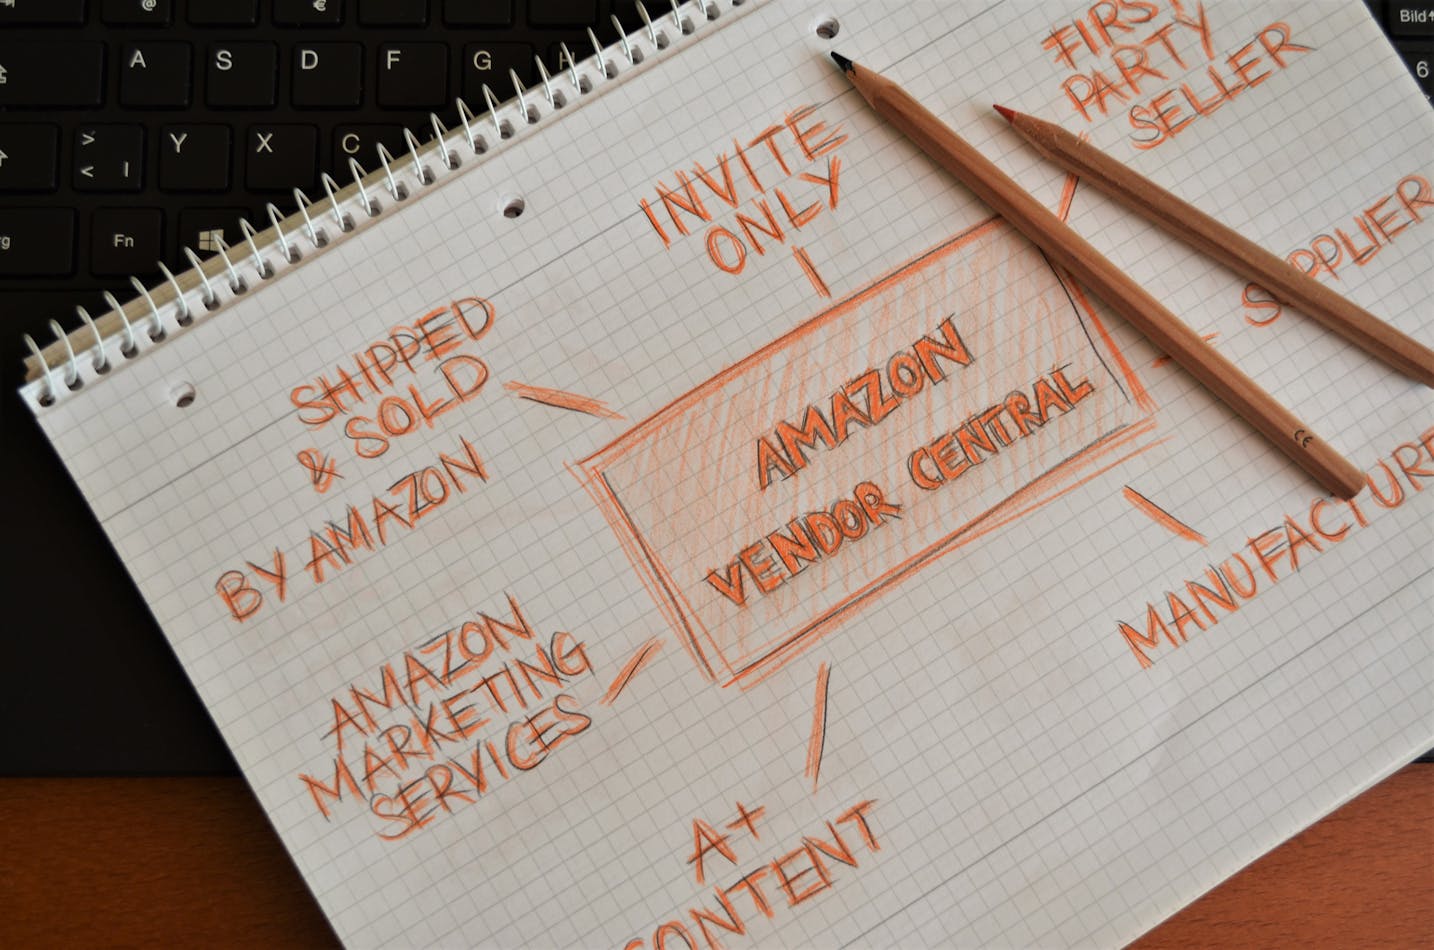 @
€
A S D F G H
> < | Y X C
Fn
Bild
6
INVITE
ONLY
FIRST
PARTY
SELLER
SUPPLIER
SHIPPED
& SOLD
BY AMAZON
AMAZON
VENDOR CENTRAL
MANUFACTURE
AMAZON
MARKETING
SERVICES
A+
CONTENT
CE